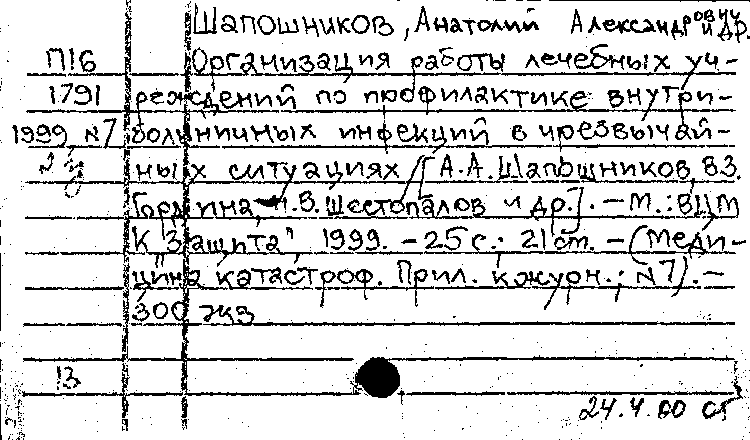 Шапошников, Анатолий Александрович и др.
П16 Организация работы лечебных уч-
1791 реждений по профилактике внутри-
1999, №7 больничных инфекций в чрезвычай-
ных ситуациях / [А.А. Шапошников, В.З.
Гордмина, Н.В. Шестопалов и др.]. - М.: ВЦМ
К "Защита", 1999. - 25 с.; 21 см. - (Меди-
цина катастроф. Прил. к журн.; №7). -
300 экз
13
24.4.00